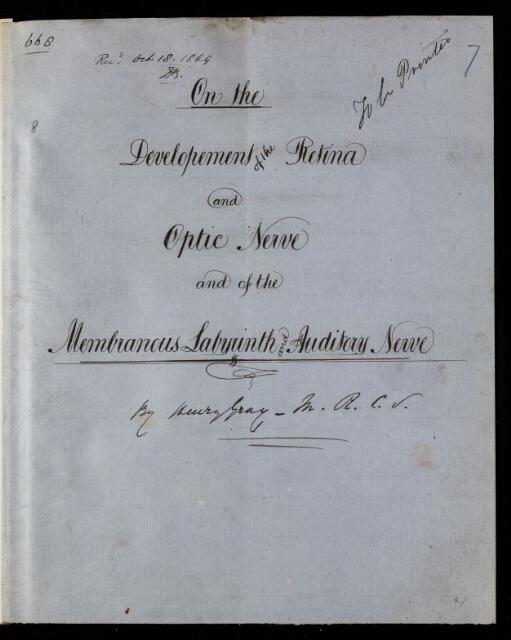 668
Rec.d Oct. 18. 1849
To be Printed
7
8
On the
Developement of the Retina
and
Optic Nerve
and of the
Membranous Labyrinth and Auditory Nerve
By Henry Gray – M. R. C. S.